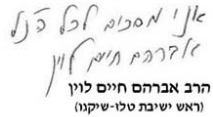 אני מסכים לכל הנ"ל
אברהם חיים לוין
הרב אברהם חיים לוין
(ראש ישיבת טלז-שיקגו)